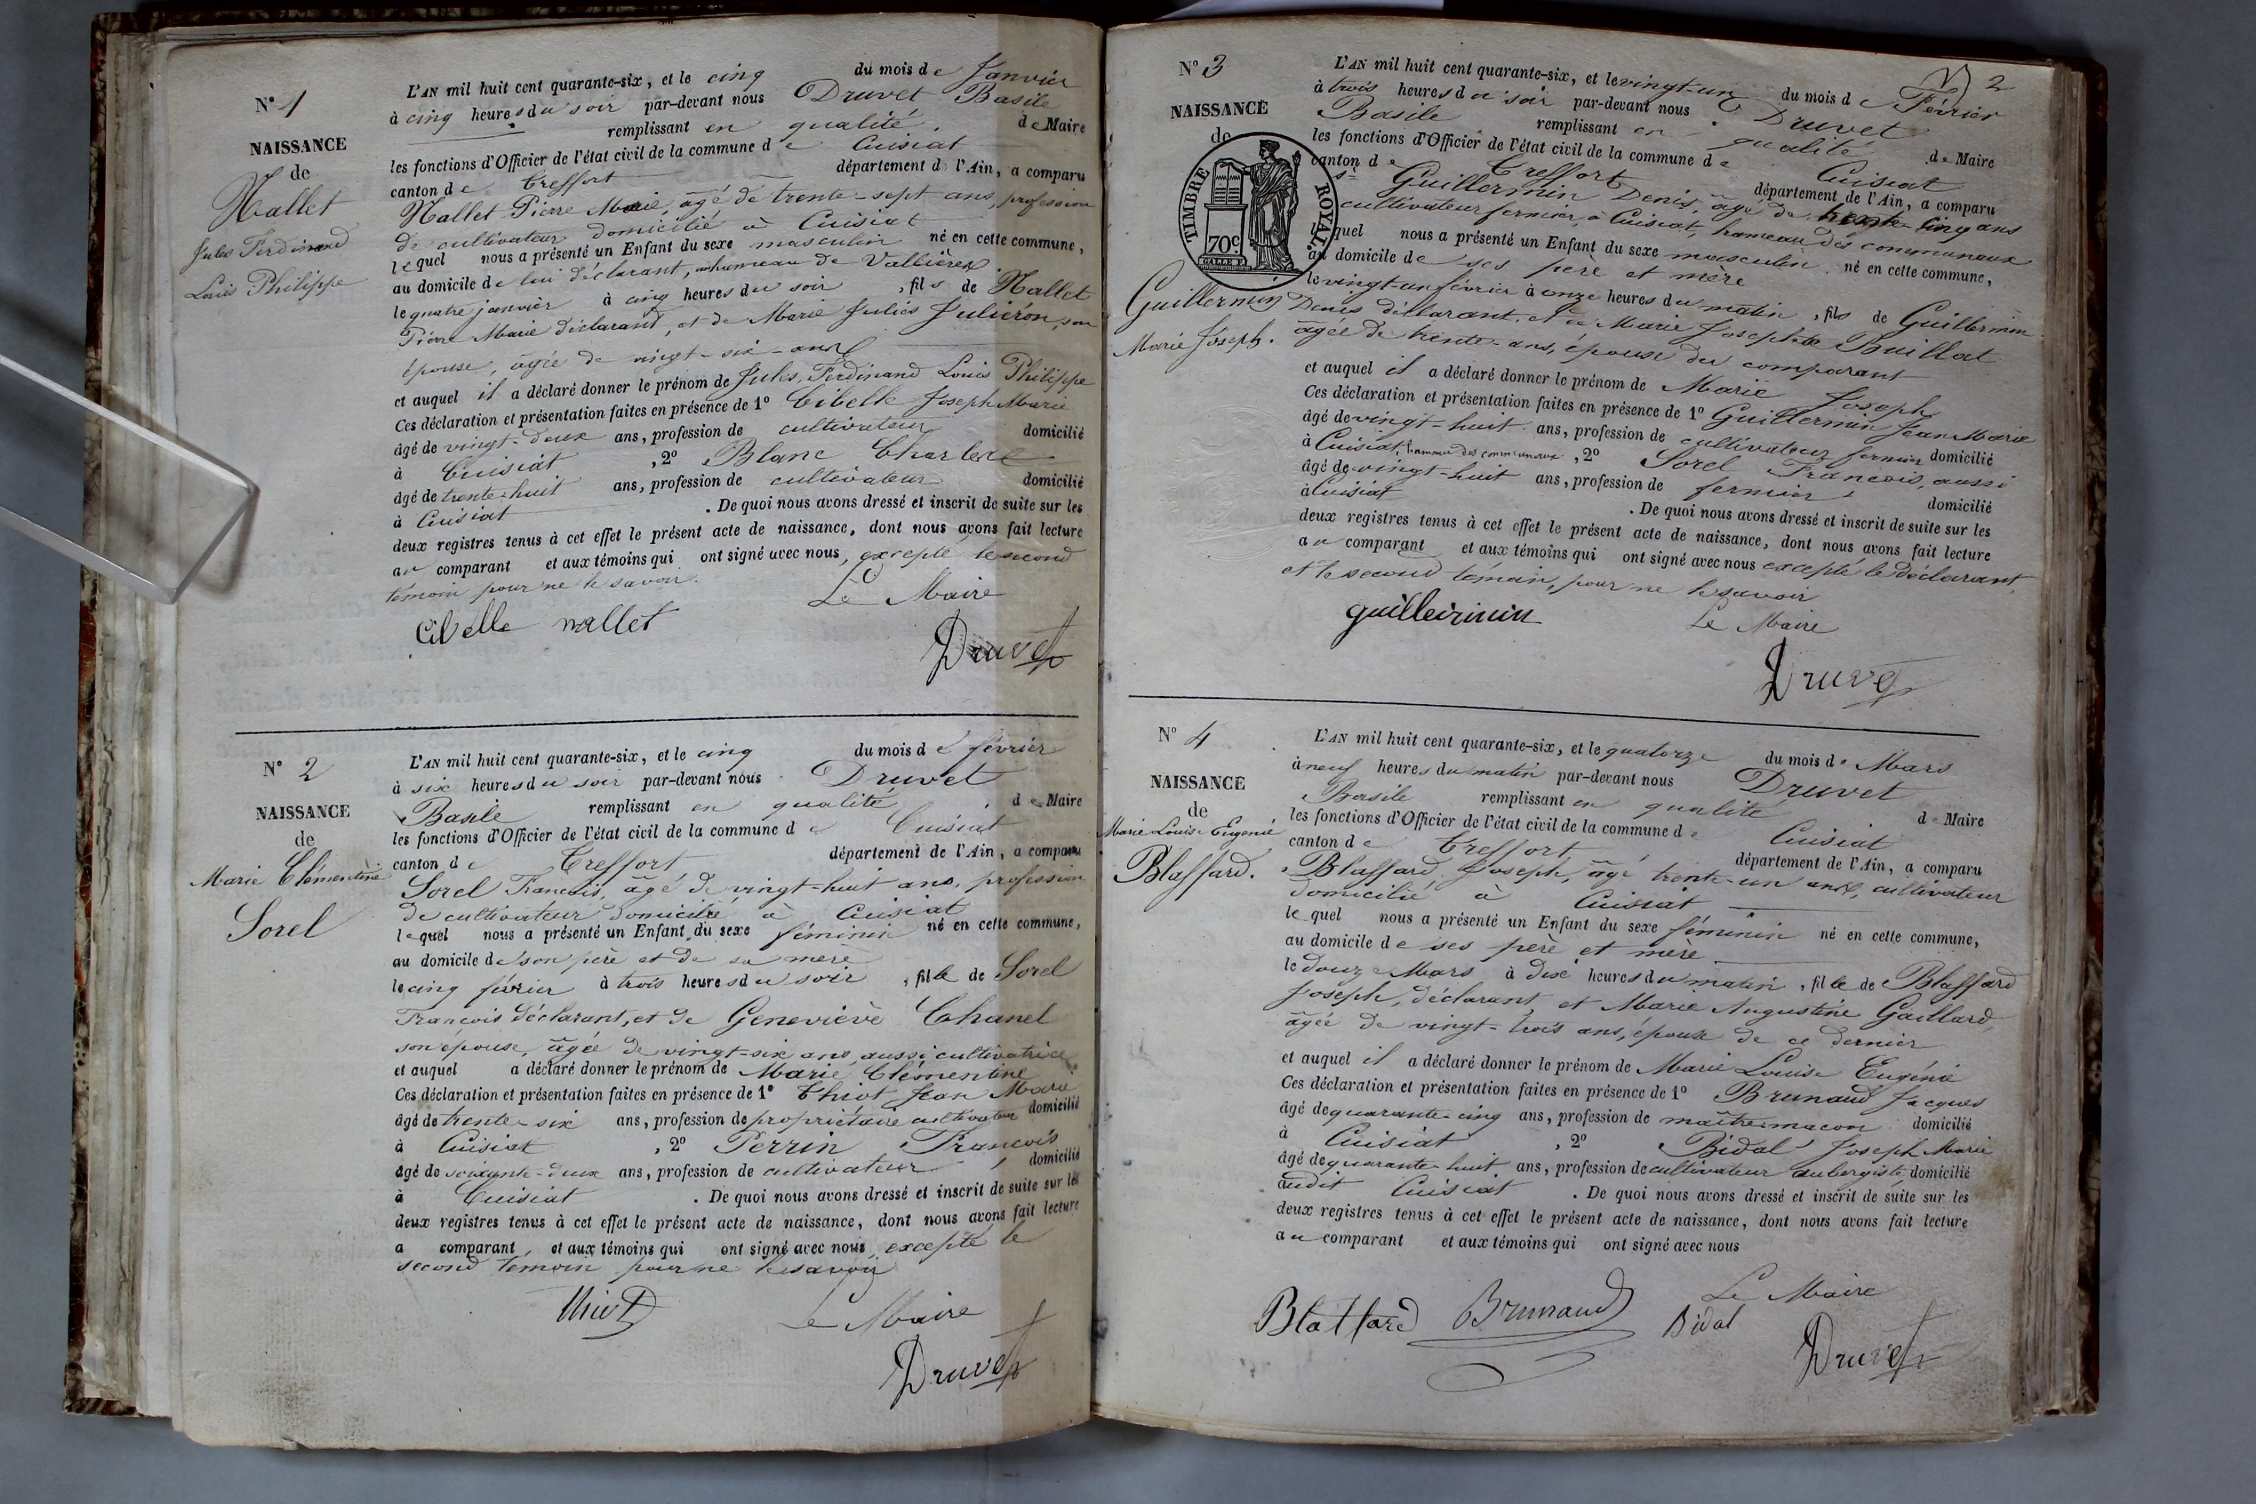 N° 1
NAISSANCE
de
Nallet
Jules Ferdinand
Louis Philippe
L'AN mil huit cent quarante-six, et le cinq du mois de Janvier
à cinq heures du soir par-devant nous Druvet Basile
remplissant en qualité de Maire
les fonctions d'Officier de l'état civil de la commune de Cuisiat
canton de Treffort département de l'Ain, a comparu
Nallet Pierre Marie, âgé de trente-sept ans, profession
de cultivateur domicilié à Cuisiat
lequel nous a présenté un Enfant du sexe masculin né en cette commune,
au domicile de lui déclarant, hameau de Vallières
le quatre janvier à cinq heures du soir, fils de Nallet
Pierre Marie déclarant, et de Marie Julies Juliéron, son
épouse, âgée de vingt-six-ans
et auquel il a déclaré donner le prénom de Jules, Ferdinand Louis Philippe
Ces déclaration et présentation faites en présence de 1° Cibelle Joseph Marie
âgé de vingt-deux ans, profession de cultivateur domicilié
à Cuisiat, 2° Blanc Charles
âgé de trente-huit ans, profession de cultivateur domicilié
à Cuisiat. De quoi nous avons dressé et inscrit de suite sur les
deux registres tenus à cet effet le présent acte de naissance, dont nous avons fait lecture
au comparant et aux témoins qui ont signé avec nous, excepté le second
témoin pour ne le savoir.
Le Maire
Cibelle nallet
Druvet
N° 2
NAISSANCE
de
Marie Clémentine
Sorel
L'AN mil huit cent quarante-six, et le cinq du mois de février
à six heures du soir par-devant nous Druvet
Basile remplissant en qualité de Maire
les fonctions d'Officier de l'état civil de la commune de Cuisiat
canton de Treffort département de l'Ain, a comparu
Sorel François, âgé de vingt-huit ans, profession
de cultivateur domicilié à Cuisiat
lequel nous a présenté un Enfant du sexe féminin né en cette commune,
au domicile de son père et de sa mère
le cinq février à trois heures du soir, fille de Sorel
François déclarant, et de Geneviève Chanel
son épouse, âgée de vingt-six ans, aussi cultivatrice
et auquel a déclaré donner le prénom de Marie Clémentine
Ces déclaration et présentation faites en présence de 1° Thiot Jean Marie
âgé de trente-six ans, profession de propriétaire cultivateur domicilié
à Cuisiat, 2° Perrin François
âgé de soixante-deux ans, profession de cultivateur domicilié
à Cuisiat. De quoi nous avons dressé et inscrit de suite sur les
deux registres tenus à cet effet le présent acte de naissance, dont nous avons fait lecture
a comparant et aux témoins qui ont signé avec nous, excepté le
second témoin pour ne le savoir
Thiot
Le Maire
Druvet
2
N° 3
NAISSANCE
de
TIMBRE ROYAL
70c
Guillermin
Marie Joseph.
L'AN mil huit cent quarante-six, et le vingt-un du mois de Février
à trois heures du soir par-devant nous Druvet
Basile remplissant en qualité de Maire
les fonctions d'Officier de l'état civil de la commune de Cuisiat
canton de Treffort département de l'Ain, a comparu
Sr Guillermin Denis, âgé de trente-cinq ans
cultivateur fermier, à Cuisiat, hameau des communaux
lequel nous a présenté un Enfant du sexe masculin né en cette commune,
au domicile de ses père et mère
le vingt-un février à onze heures du matin, fils de Guillermin
Denis déclarant, et de Marie Josephte Buillat
âgée de trente-ans, épouse du comparant
et auquel il a déclaré donner le prénom de Marie Joseph
Ces déclaration et présentation faites en présence de 1° Guillermin Jean Marie
âgé de vingt-huit ans, profession de cultivateur fermier domicilié
à Cuisiat, hameau des communaux, 2° Sorel François, aussi
âgé de vingt-huit ans, profession de fermier domicilié
à Cuisiat. De quoi nous avons dressé et inscrit de suite sur les
deux registres tenus à cet effet le présent acte de naissance, dont nous avons fait lecture
au comparant et aux témoins qui ont signé avec nous excepté le déclarant,
et le second témoin, pour ne le savoir
guillermin
Le Maire
Druvet
N° 4
NAISSANCE
de
Marie Louise Eugénie
Blaffard.
L'AN mil huit cent quarante-six, et le quatorze du mois de Mars
à neuf heures du matin par-devant nous Druvet
Basile remplissant en qualité de Maire
les fonctions d'Officier de l'état civil de la commune de Cuisiat
canton de Treffort département de l'Ain, a comparu
Blaffard Joseph, âgé trente-un ans, cultivateur
domicilié à Cuisiat
lequel nous a présenté un Enfant du sexe féminin né en cette commune,
au domicile de ses père et mère
le douze Mars à dix heures du matin, fille de Blaffard
Joseph, déclarant, et Marie Augustine Gaillard,
âgée de vingt-trois ans, épouse de ce dernier
et auquel il a déclaré donner le prénom de Marie Louise Eugénie
Ces déclaration et présentation faites en présence de 1° Brunaud Jacques
âgé de quarante-cinq ans, profession de maître maçon domicilié
à Cuisiat, 2° Bidal Joseph Marie
âgé de quarante-huit ans, profession de cultivateur aubergiste, domicilié
audit Cuisiat. De quoi nous avons dressé et inscrit de suite sur les
deux registres tenus à cet effet le présent acte de naissance, dont nous avons fait lecture
au comparant et aux témoins qui ont signé avec nous
Le Maire
Blaffard Brunaud Bidal
Druvet